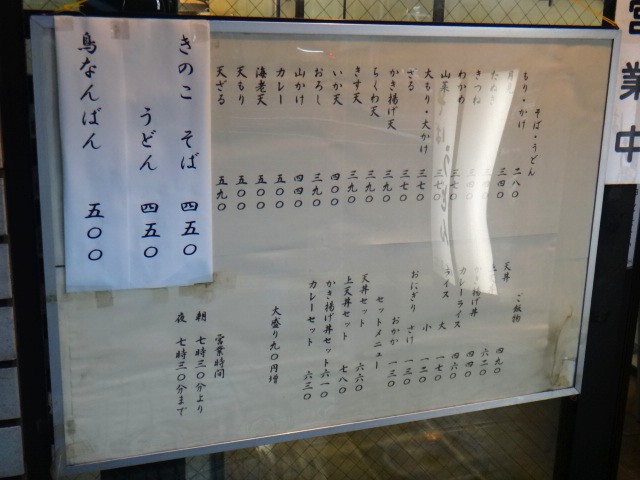 営業中
そば・うどん
もり・かけ 二八〇
三四〇
たぬき
きつね
わかめ 三七〇
山菜 三七〇
大もり・大かけ 三七〇
ざる 三七〇
かき揚げ天 三九〇
ちくわ天 三九〇
きす天 三九〇
いか天 四〇〇
おろし 三九〇
山かけ 四四〇
カレー 五〇〇
海老天 五〇〇
天もり 五〇〇
天ざる 五九〇
きのこ そば 四五〇
うどん 四五〇
鳥なんばん 五〇〇
ご飯物
天丼 四九〇
六二〇
かき揚げ丼 四四〇
カレーライス 四六〇
ライス 大 一七〇
小 一二〇
おにぎり さけ 一三〇
おかか 一三〇
セットメニュー
天丼セット 六六〇
上天丼セット 七八〇
かき揚げ丼セット 六一〇
カレーセット 六三〇
大盛り九〇円増
営業時間
朝 七時三〇分より
夜 七時三〇分まで